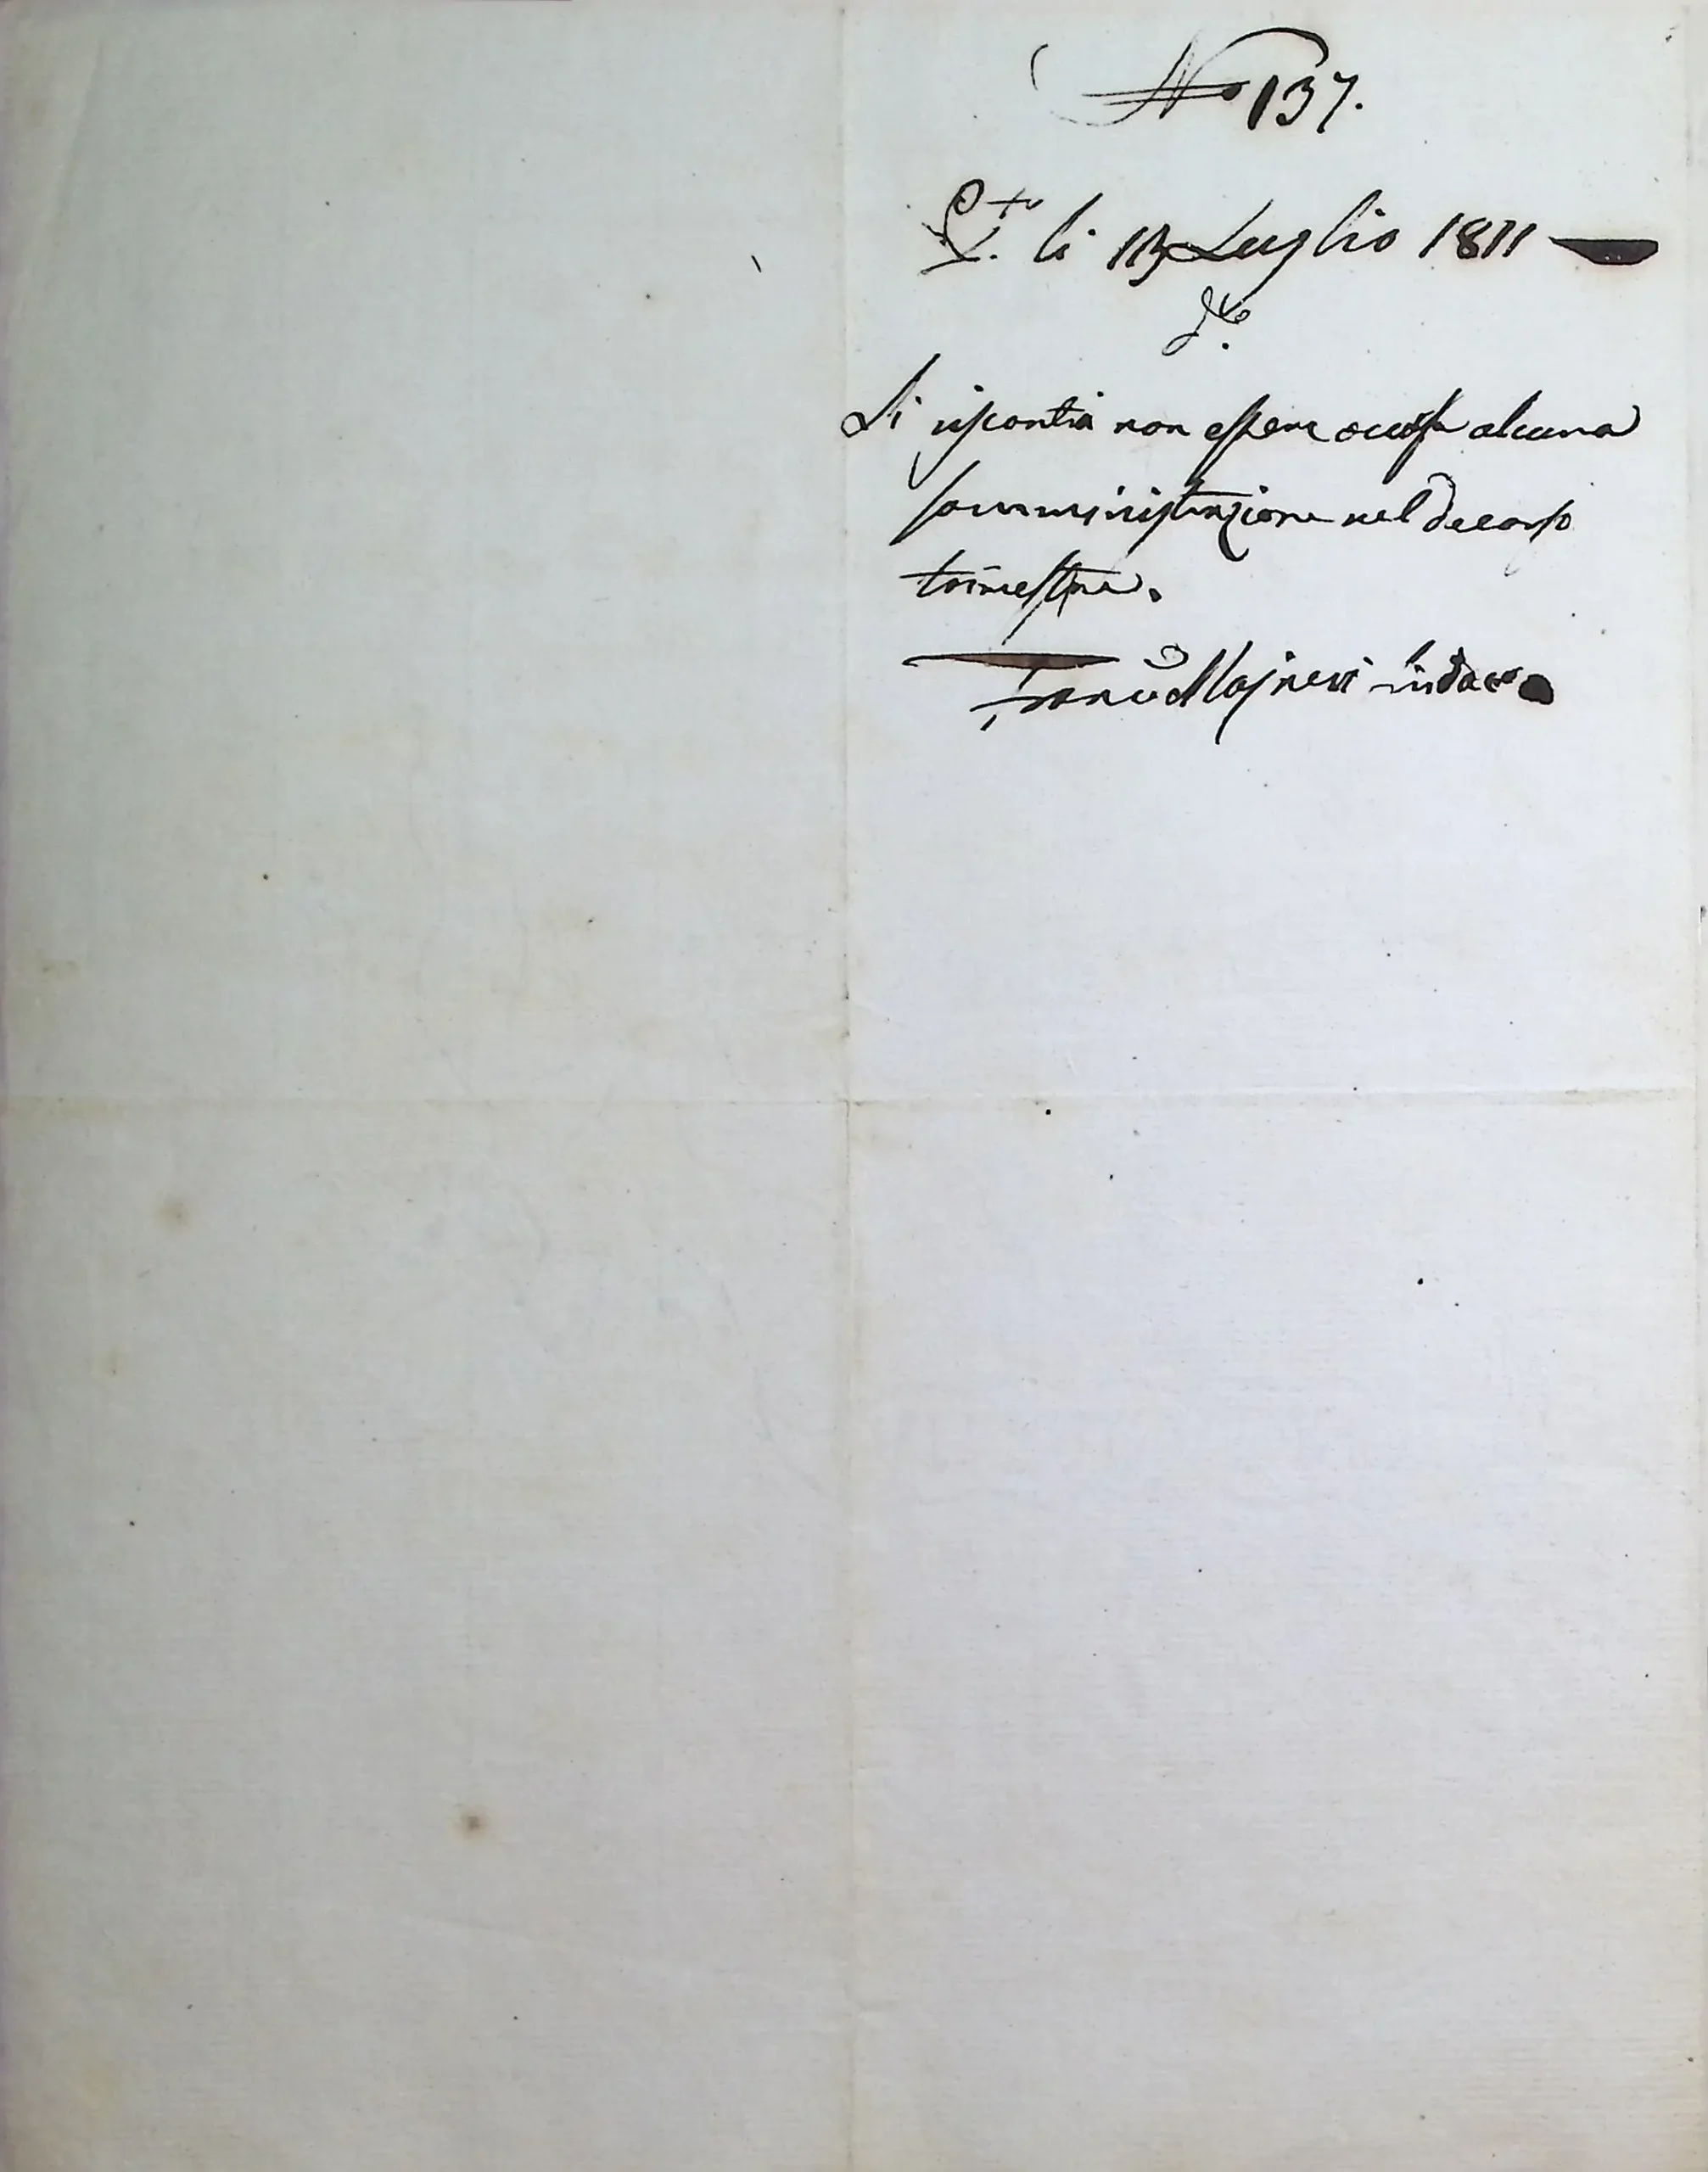 No 137.
li 13 Luglio 1811
Si riscontra non essere occorsa alcuna
somministrazione nel decorso
trimestre.
Franco Majneri Sindaco